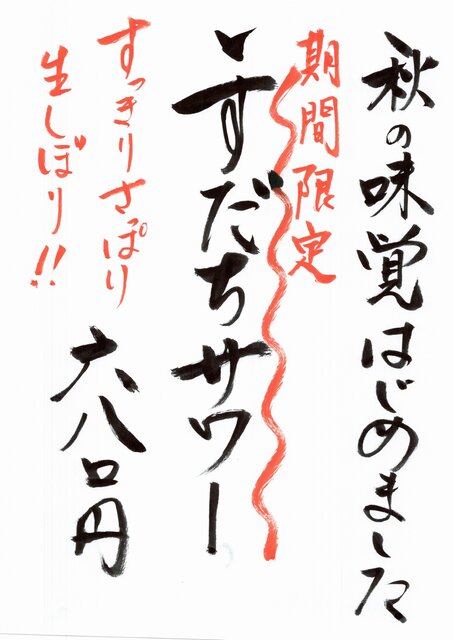 秋の味覚はじめました
期間限定
すだちサワー
すっきりさっぱり
生しぼり!!
六八〇円